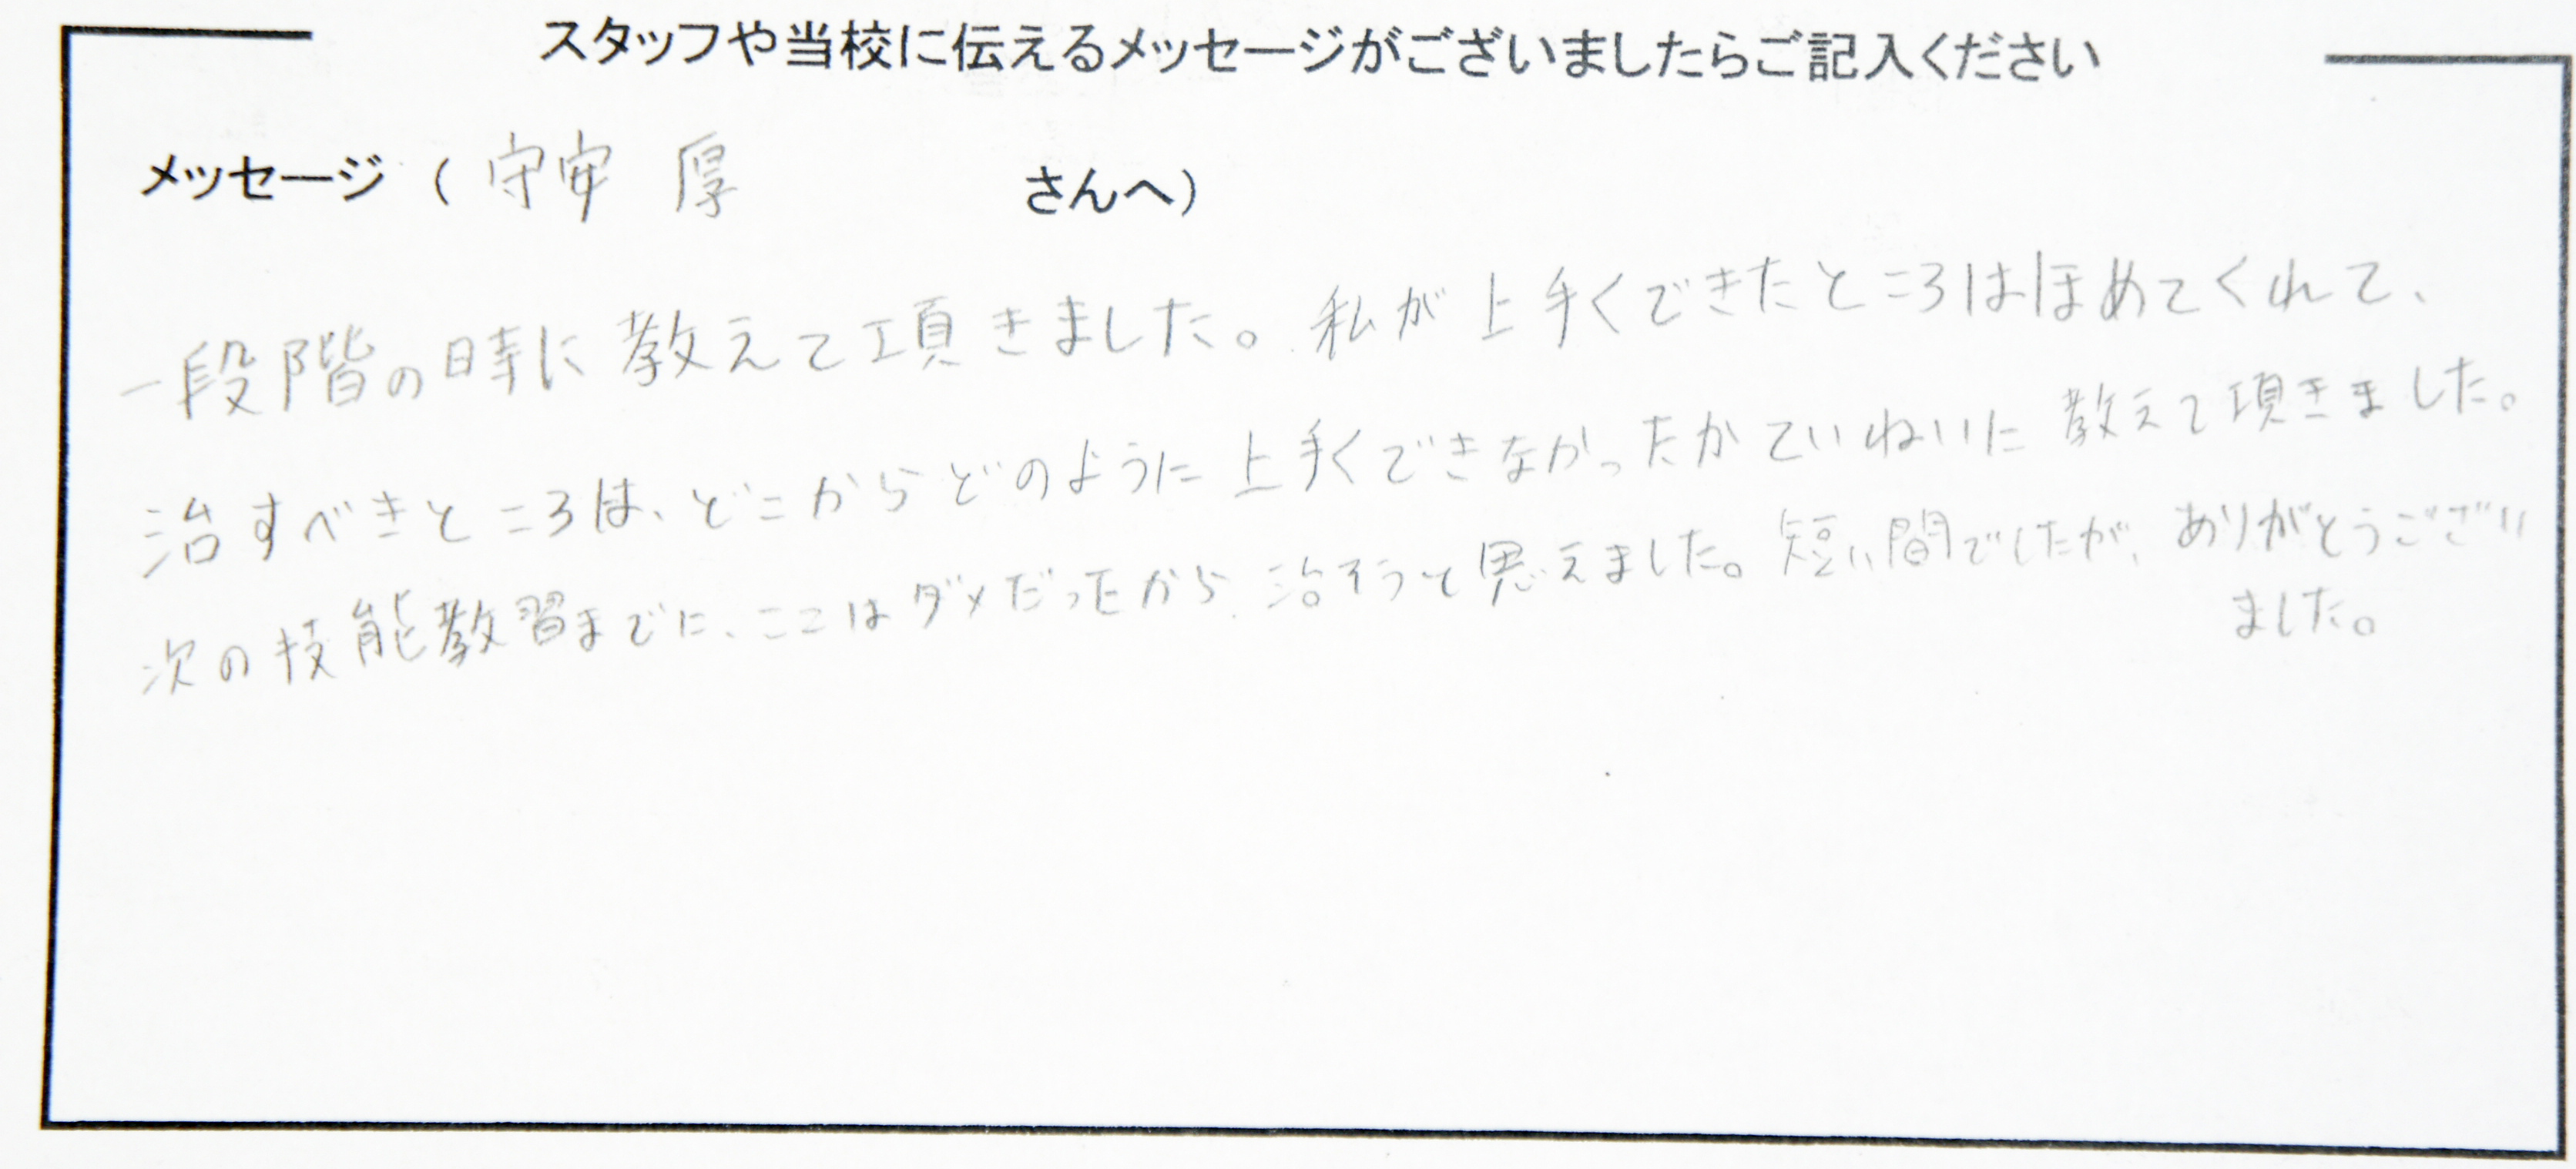 スタッフや当校に伝えるメッセージがございましたらご記入ください
メッセージ（守安 厚 さんへ）
一段階の時に教えて頂きました。私が上手くできたところはほめてくれて、
治すべきところは、どこからどのように上手くできなかったかていねいに教えて頂きました。
次の技能教習までに、ここはダメだったから、治そうと思えました。短い間でしたが、ありがとうござい
ました。